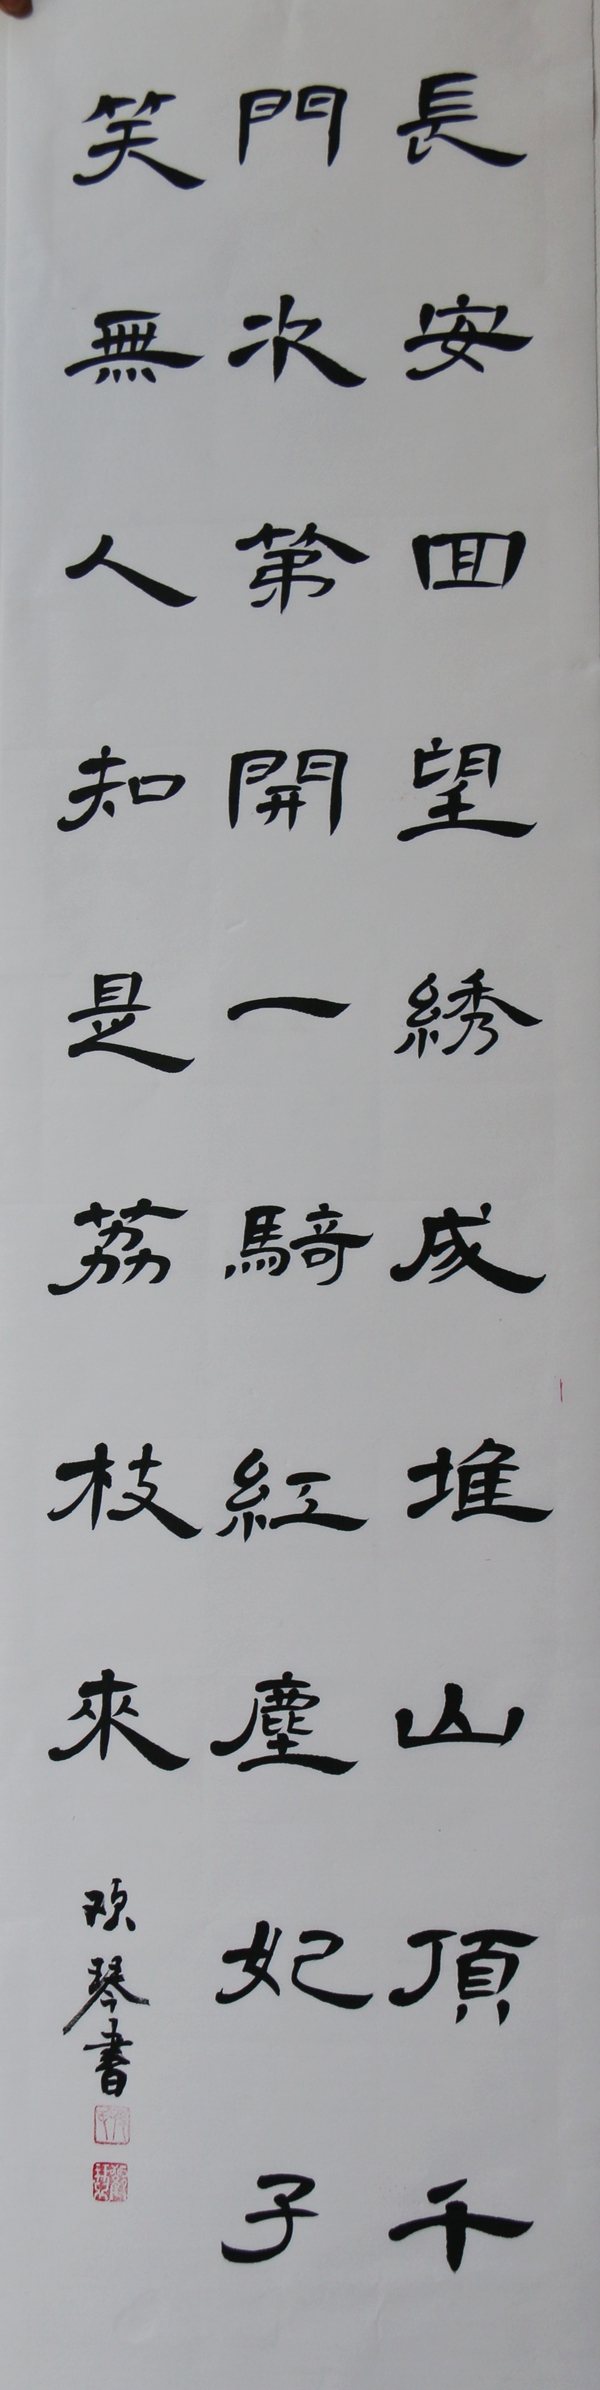 長安回望綉成堆山頂千
門次第開一騎紅塵妃子
笑無人知是荔枝來
欢琴書